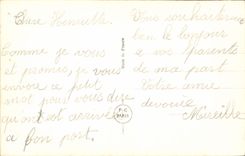 Chère Henriette
Comme je vous
et promis, je vous
envoie ce petit
mot pour vous dire
qui ont est arrivée
à bon port.
Vous souhaite
ben le bonjour
a vos parents
de ma part
Votre amie
dévouée
Mireille
P-C
PARIS